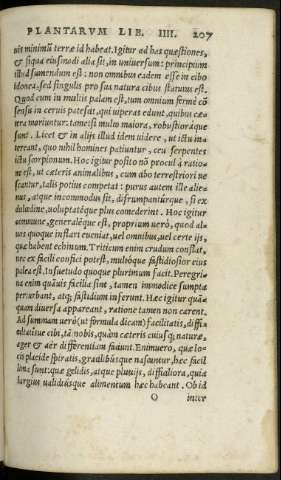 PLANTARVM LIB. IIII. 207
uis minimũ terræ id habeat. Igitur ad has quæstiones,
& siqua eiusmodi alia sit, in uniuersum: principium
illud sumendum est: non omnibus eadem esse in cibo
idonea, sed singulis pro sua natura cibus statutus est.
Quod cum in multis palam est, tum omnium fermè cõ
sensu in ceruis patefit, qui uiperas edunt, quibus cæ-
tera moriuntur: tametsi multo maiora, robustioráque
sunt. Licet & in alijs illud idem uidere, ut ictu in-
tereant, quo nihil homines patiuntur, ceu serpentes
ictu scorpionum. Hoc igitur posito nõ procul à ratio-
ne est, ut cæteris animalibus, cum cibo terrestriori ue
scantur, talis potius competat: purus autem ille alie-
nus, atque incommodus sit, disrumpantúrque, si ex
dulcedine, uoluptatéque plus comederint. Hoc igitur
commune, generaléque est, proprium uerò, quod al-
uos quoque instart eueniat, uel omnibus, uel certe ijs,
quæ habent echinum. Triticum enim crudum constat,
nec ex facili confici potest, multóque fastidiosior eius
palea est. Insuetudo quoque plurimum facit. Peregri-
na enim quãuis facilia sint, tamen immodice sumpta
perturbant, atq; fastidium inferunt. Hæc igitur quãu-
quam diuersa appareant, ratione tamen non carent.
Ad summam uerò (ut formula dicam) facilitatis, diffi-
cultatisue cibi, tã nobis, quàm cæteris cuiusq; naturæ,
ager & aër differentiam faciunt. Enimuero, quæ lo-
cis placide spiratis, gracilibúsque nascuntur, hæc facil
lima sunt: quæ gelidis, atque pluuijs, difficiliora, quia
largius ualidiúsque alimentum hæc habeant. Ob id
O inter